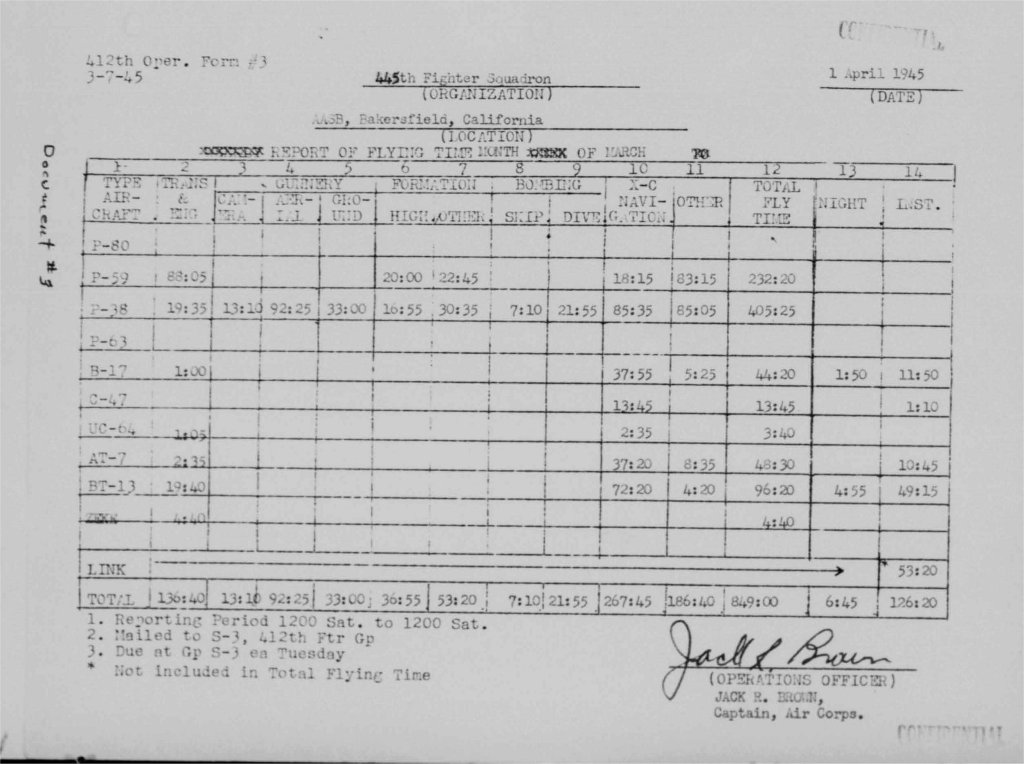 CONFIDENTIAL
412th Oper. Form #3
3-7-45
445th Fighter Squadron
1 April 1945
(ORGANIZATION)
(DATE)
AASB, Bakersfield, California
(LOCATION)
REPORT OF FLYING TIME MONTH OF MARCH
Document #3
1 2 3 4 5 6 7 8 9 10 11 12 13 14
TYPE TRANS GUNNERY FORMATION BOMBING X-C TOTAL
AIR- & CAM- AER- GRO- NAVI- OTHER FLY NIGHT INST.
CRAFT ENG ERA IAL UND HIGH OTHER SKIP DIVE GATION TIME
P-80
P-59 88:05 20:00 22:45 18:15 83:15 232:20
P-38 19:35 13:10 92:25 33:00 16:55 30:35 7:10 21:55 85:35 85:05 405:25
P-63
B-17 1:00 37:55 5:25 44:20 1:50 11:50
C-47 13:45 13:45 1:10
UC-64 1:05 2:35 3:40
AT-7 2:35 37:20 8:35 48:30 10:45
BT-13 19:40 72:20 4:20 96:20 4:55 49:15
ZEKE 4:40 4:40
LINK * 53:20
TOTAL 136:40 13:10 92:25 33:00 36:55 53:20 7:10 21:55 267:45 186:40 849:00 6:45 126:20
1. Reporting Period 1200 Sat. to 1200 Sat.
2. Mailed to S-3, 412th Ftr Gp
3. Due at Gp S-3 ea Tuesday
* Not included in Total Flying Time
Jack R. Brown
(OPERATIONS OFFICER)
JACK R. BROWN,
Captain, Air Corps.
CONFIDENTIAL